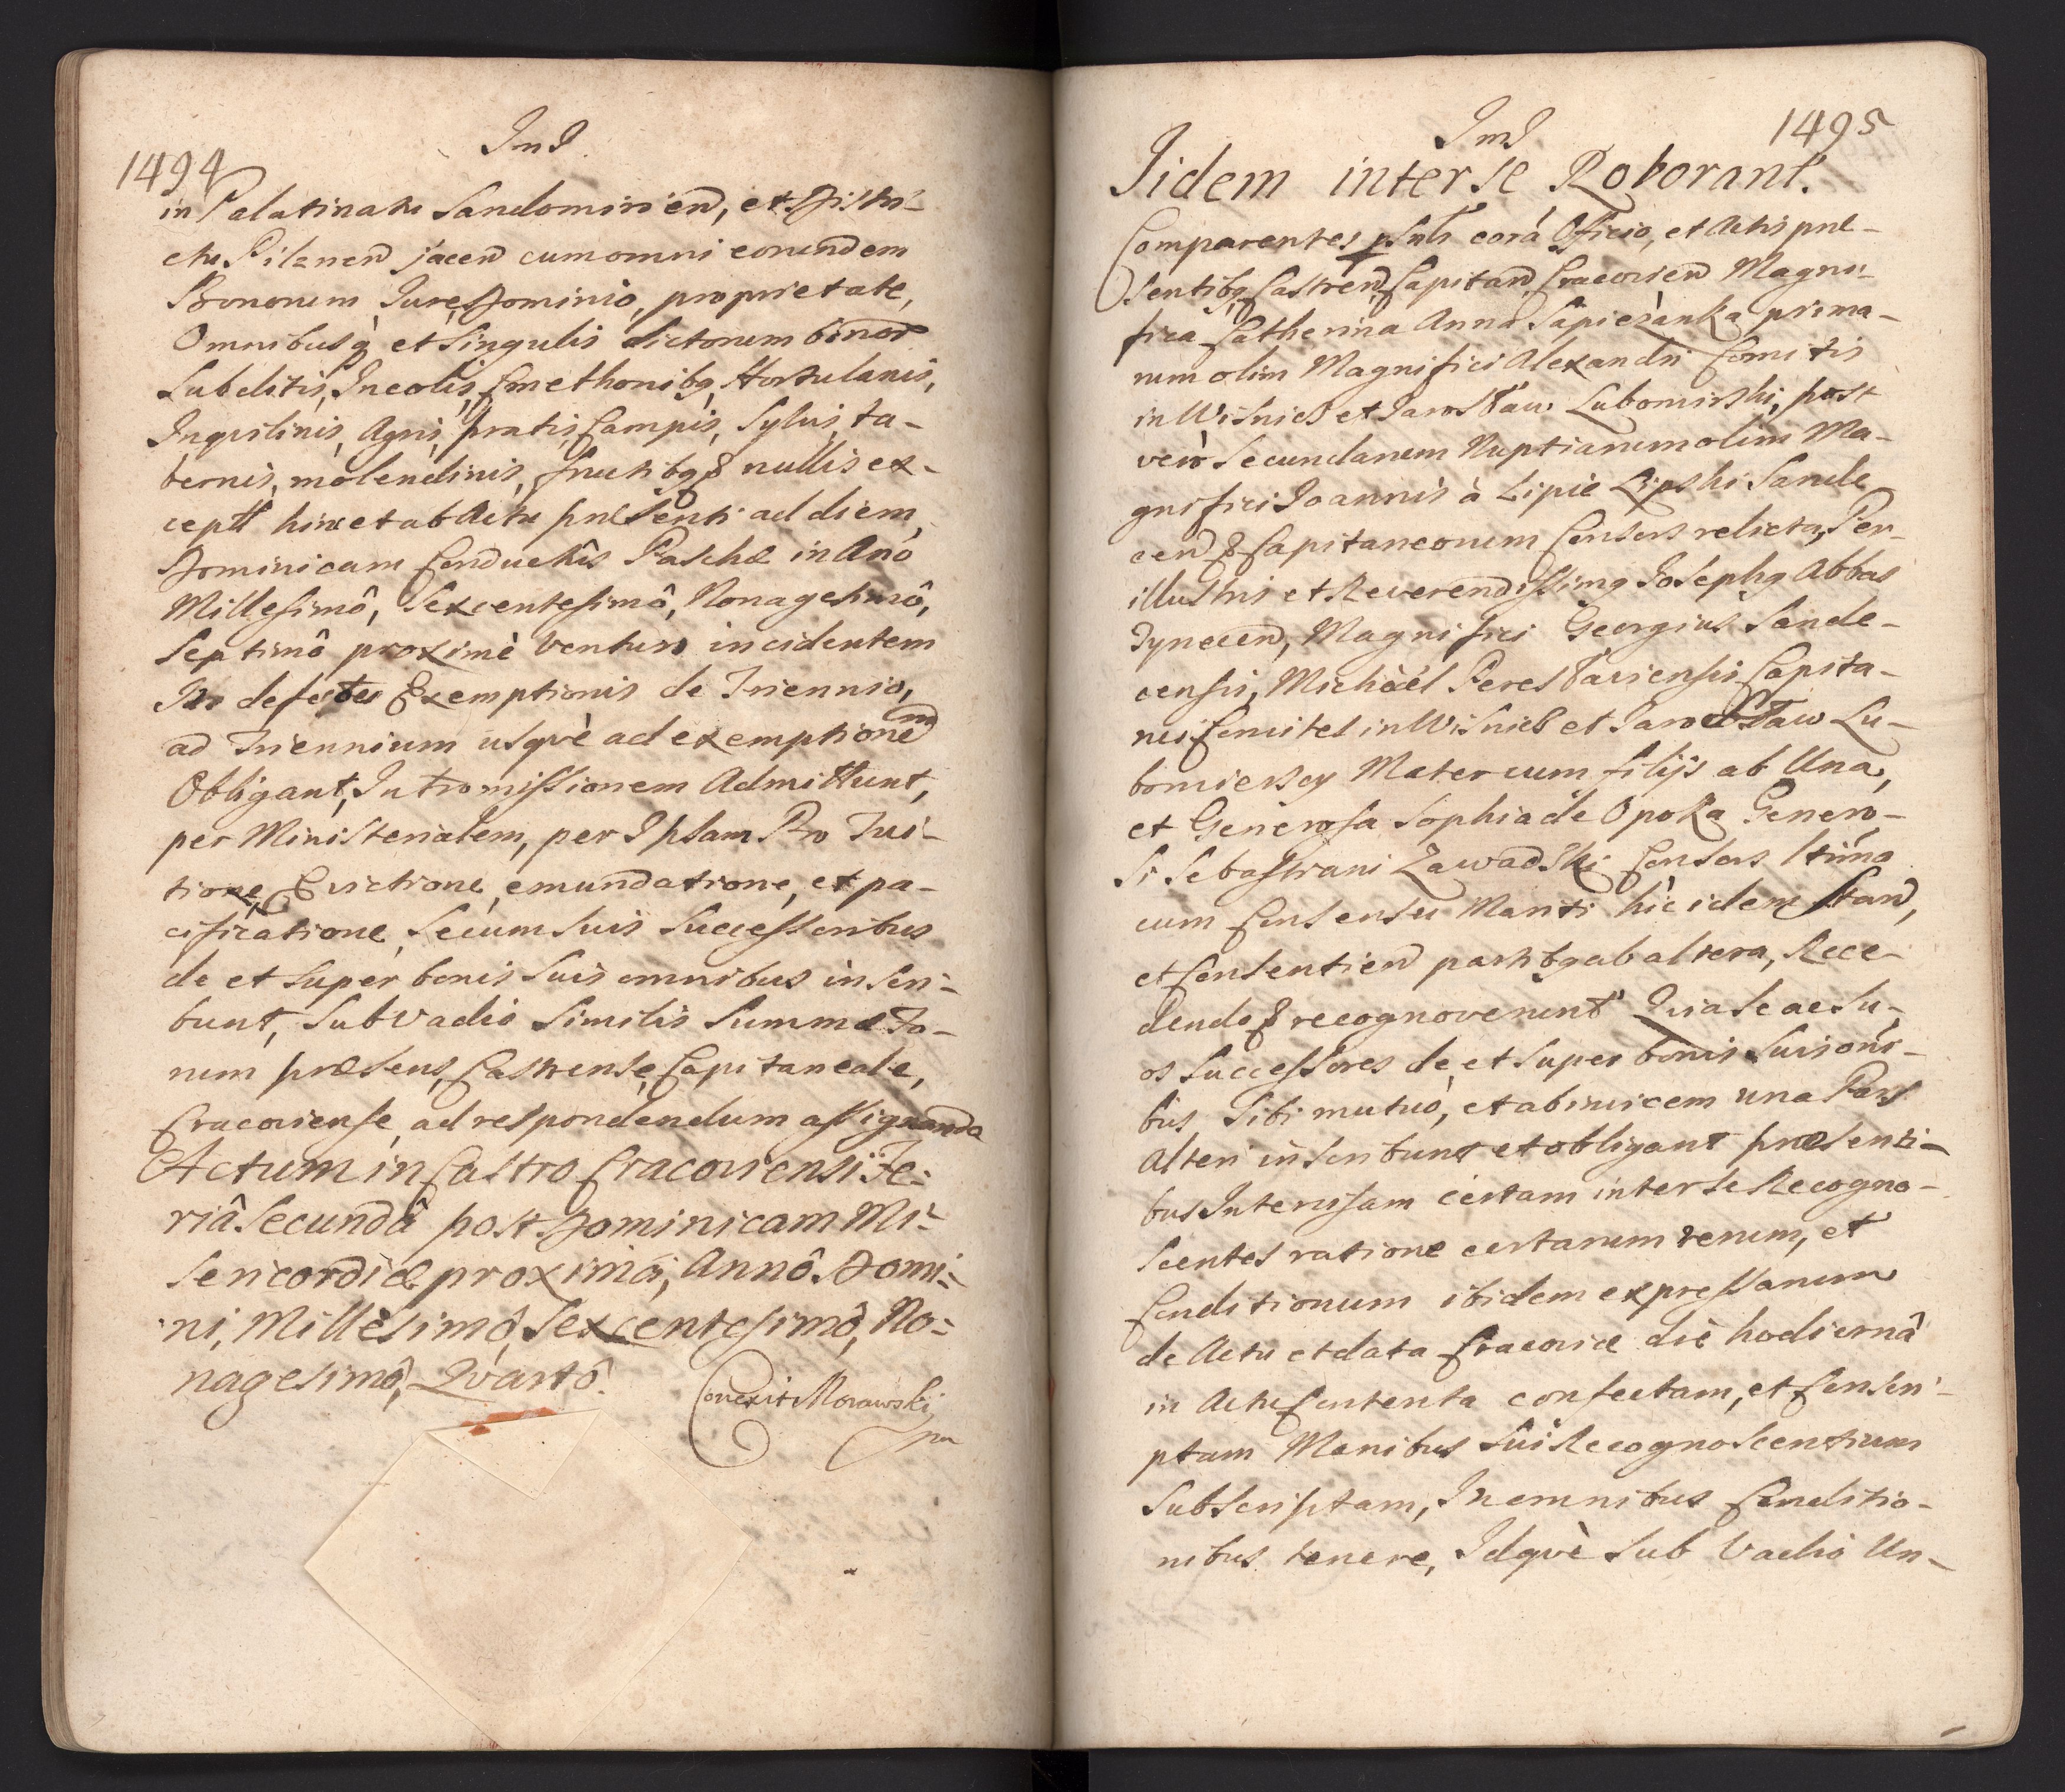 1494
in Palatinatu Sandomirien, et Distri-
ctu Pilznen jacen cum omni eorundem
Bonorum Jure, Dominio, proprietate,
Omnibusq et Singulis dictorum bonor
Subditis, Incolis, Cmethonibq, Hortulanis,
Inqvilinis, Agris, pratis, Campis, Sylvis, ta-
bernis, molendinis, fructibq & nullis ex-
ceptt hinc et ab Actu præsenti ad diem
Dominicam Conductûs Paschæ in Ano
Millesimô, Sexcentesimô, Nonagesimô,
Septimô proximè venturo incidentem
In defectu Exemptionis de Triennio,
ad Triennium usqvè ad exemptionem
Obligant, Intromissionem Admittunt,
per Ministerialem, per Ipsam Pro Tui-
tione, Evictione, emundatione, et pa-
cificatione, Se cum suis Successoribus
de et super bonis suis omnibus inscri-
bunt, sub vadio similis Summæ Fo-
rum præsens, Castrense, Capitaneale,
Cracoviense, ad respondendum assignando
Actum in Castro Cracoviensi Fe-
riâ Secundâ post Dominicam Mi-
sericordiæ proximâ, Annô Domi-
ni, Millesimô, Sexcentesimô, No-
nagesimô, Qvartô.
Correxit Morawski
1495
Iidem inter se Roborant.
Comparentes psnlr corá Officio, et Actis præ-
sentibq Castren, Capitan, Cracovien Magni-
fica Catherina Anna Sapieżanka prima-
rum olim Magnifici Alexandri Comitis
in Wisnicz et Jarosław Lubomirski, post
verò Secundarum Nuptiarum olim Ma-
gnifici Joannis à Lipie Lipski Sande
cen & Capitaneorum Consors relicta, Per-
illustris et Reverendissimq Josephq Abbas
Tynecen, Magnifici Georgius Sande-
censis, Michàél Peresłaviensis Capita-
nei Comites in Wisnicz et Jarosław Lu-
bomierscy Mater cum filijs ab Una,
et Generosa Sophia de Opoka Genero-
si Sebastiani Zawadzki Consors ltima
cum Consensu Mariti hic idem stan,
et Consentien partibq ab altera, Rece-
dendo & recognoverunt Quia se ac Su-
os Successores de, et super bonis suis oni-
bus, Sibi mutuò, et ab invicem una Pars
Alteri inscribunt et obligant præsenti-
bus Intercisam certam inter se Recogno-
scentes ratione certarum rerum, et
Conditionum ibidem expressarum
de Actu et data Cracoviæ die hodiernâ
in Actu Contenta confectam, et Conscri-
ptam Manibus sui Recognoscentium
Subscriptam, In omnibus Conditio-
nibus tenere, Idqvè sub Vadio Un-